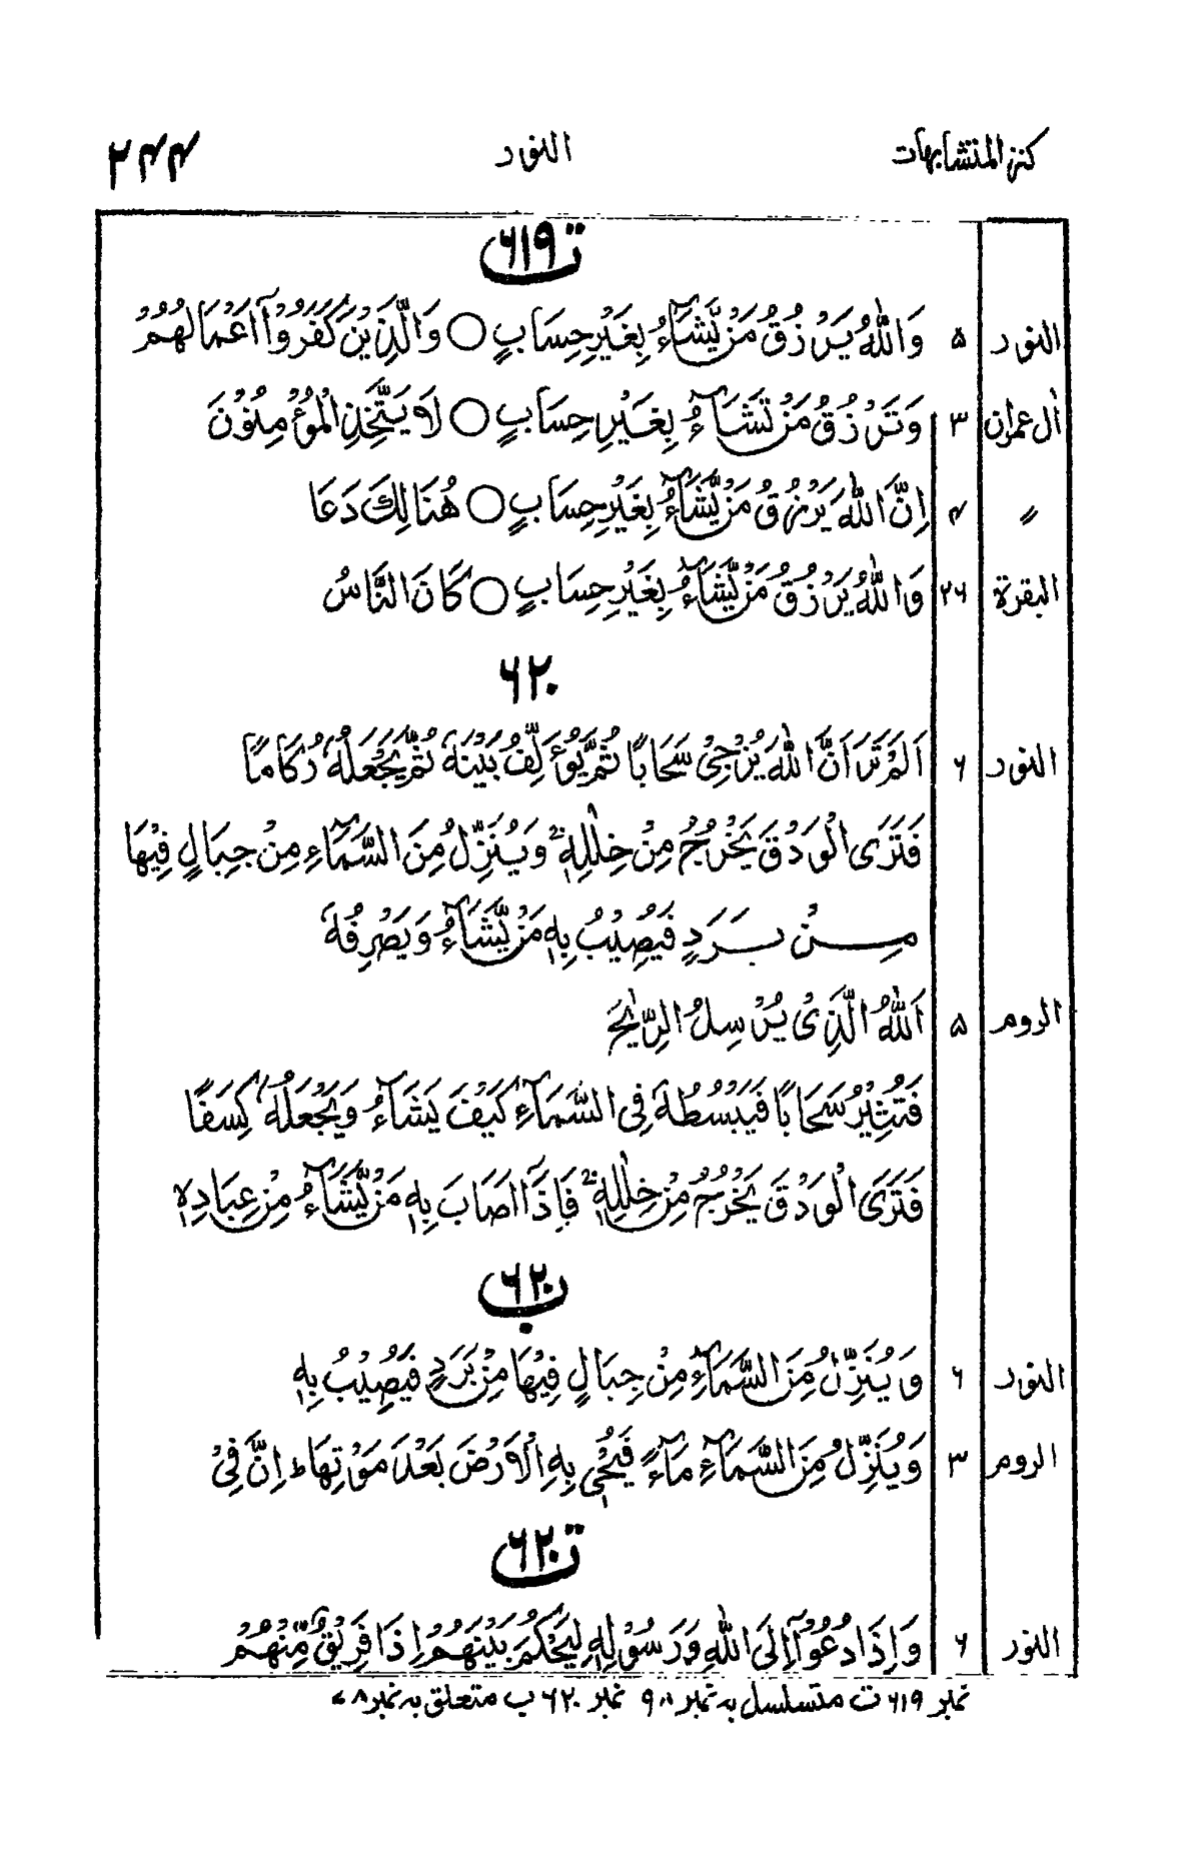 كنز المتشابهات النور ۲۴۴
۶۱۹ ت
النور ۵ وَاللّٰهُ يَرْزُقُ مَنْ يَّشَآءُ بِغَيْرِ حِسَابٍ ○ وَالَّذِيْنَ كَفَرُوْٓا اَعْمَالُهُمْ
اٰل عمران ۳ وَتَرْزُقُ مَنْ تَشَآءُ بِغَيْرِ حِسَابٍ ○ لَا يَتَّخِذِ الْمُؤْمِنُوْنَ
〃 ۴ اِنَّ اللّٰهَ يَرْزُقُ مَنْ يَّشَآءُ بِغَيْرِ حِسَابٍ ○ هُنَالِكَ دَعَا
البقرة ۲۶ وَاللّٰهُ يَرْزُقُ مَنْ يَّشَآءُ بِغَيْرِ حِسَابٍ ○ كَانَ النَّاسُ
۶۲۰
النور ۶ اَلَمْ تَرَ اَنَّ اللّٰهَ يُزْجِيْ سَحَابًا ثُمَّ يُؤَلِّفُ بَيْنَهٗ ثُمَّ يَجْعَلُهٗ رُكَامًا
فَتَرَى الْوَدْقَ يَخْرُجُ مِنْ خِلٰلِهٖ ۚ وَيُنَزِّلُ مِنَ السَّمَآءِ مِنْ جِبَالٍ فِيْهَا
مِنْۢ بَرَدٍ فَيُصِيْبُ بِهٖ مَنْ يَّشَآءُ وَيَصْرِفُهٗ
الروم ۵ اَللّٰهُ الَّذِيْ يُرْسِلُ الرِّيٰحَ
فَتُثِيْرُ سَحَابًا فَيَبْسُطُهٗ فِي السَّمَآءِ كَيْفَ يَشَآءُ وَيَجْعَلُهٗ كِسَفًا
فَتَرَى الْوَدْقَ يَخْرُجُ مِنْ خِلٰلِهٖ ۚ فَاِذَآ اَصَابَ بِهٖ مَنْ يَّشَآءُ مِنْ عِبَادِهٖ
۶۲۰ ب
النور ۶ وَيُنَزِّلُ مِنَ السَّمَآءِ مِنْ جِبَالٍ فِيْهَا مِنْۢ بَرَدٍ فَيُصِيْبُ بِهٖ
الروم ۳ وَيُنَزِّلُ مِنَ السَّمَآءِ مَآءً فَيُحْيٖ بِهِ الْاَرْضَ بَعْدَ مَوْتِهَا ؕ اِنَّ فِيْ
۶۲۰ ت
النور ۶ وَاِذَا دُعُوْٓا اِلَى اللّٰهِ وَرَسُوْلِهٖ لِيَحْكُمَ بَيْنَهُمْ اِذَا فَرِيْقٌ مِّنْهُمْ
نمبر ۶۱۹ ت متسلسل به نمبر ۹۰۸ نمبر ۶۲۰ ب متعلق به نمبر ۷۸